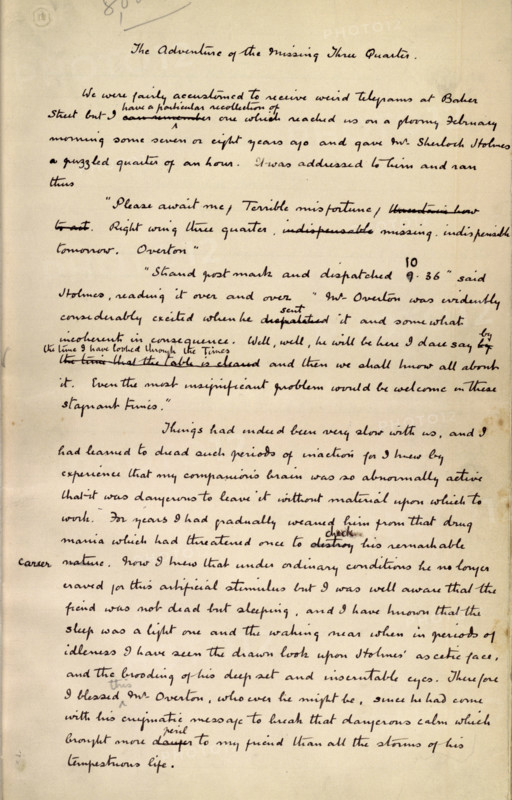 The Adventure of the Missing Three Quarter.
We were fairly accustomed to receive weird telegrams at Baker
have a particular recollection of
Street but I can remember one which reached us on a gloomy February
morning some seven or eight years ago and gave Mr. Sherlock Holmes
a puzzled quarter of an hour. It was addressed to him and ran
thus
"Please await me / Terrible misfortune / Uncertain how
to act. Right wing three quarter, indispensable missing. indispensible
tomorrow. Overton"
10
"Strand post mark and dispatched 9.36" said
Holmes, reading it over and over " Mr Overton was evidently
sent
considerably excited when he dispatched it and somewhat
incoherent in consequence. Well, well, he will be here I dare say by
by
the time I have looked through the Times
the time that the table is cleared and then we shall know all about
it. Even the most insignificant problem would be welcome in these
stagnant times."
Things had indeed been very slow with us, and I
had learned to dread such periods of inaction for I knew by
experience that my companion's brain was so abnormally active
that it was dangerous to leave it without material upon which to
work. For years I had gradually weaned him from that drug
check
mania which had threatened once to destroy his remarkable
career nature. Now I knew that under ordinary conditions he no longer
craved for this artificial stimulus but I was well aware that the
fiend was not dead but sleeping, and I have known that the
sleep was a light one and the waking near when in periods of
idleness I have seen the drawn look upon Holmes' ascetic face,
and the brooding of his deep set and inscrutable eyes. Therefore
this
I blessed Mr. Overton, who ever he might be, since he had come
with his enigmatic message to break that dangerous calm which
peril
brought more danger to my friend than all the storms of his
tempestuous life.